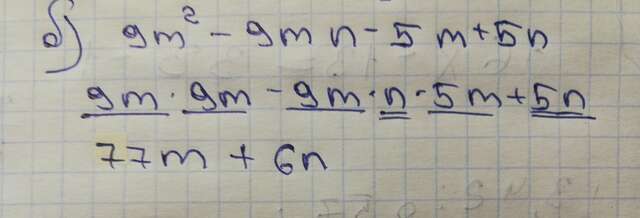 б) 9m² - 9mn - 5m + 5n
9m · 9m - 9m · n - 5m + 5n
77m + 6n